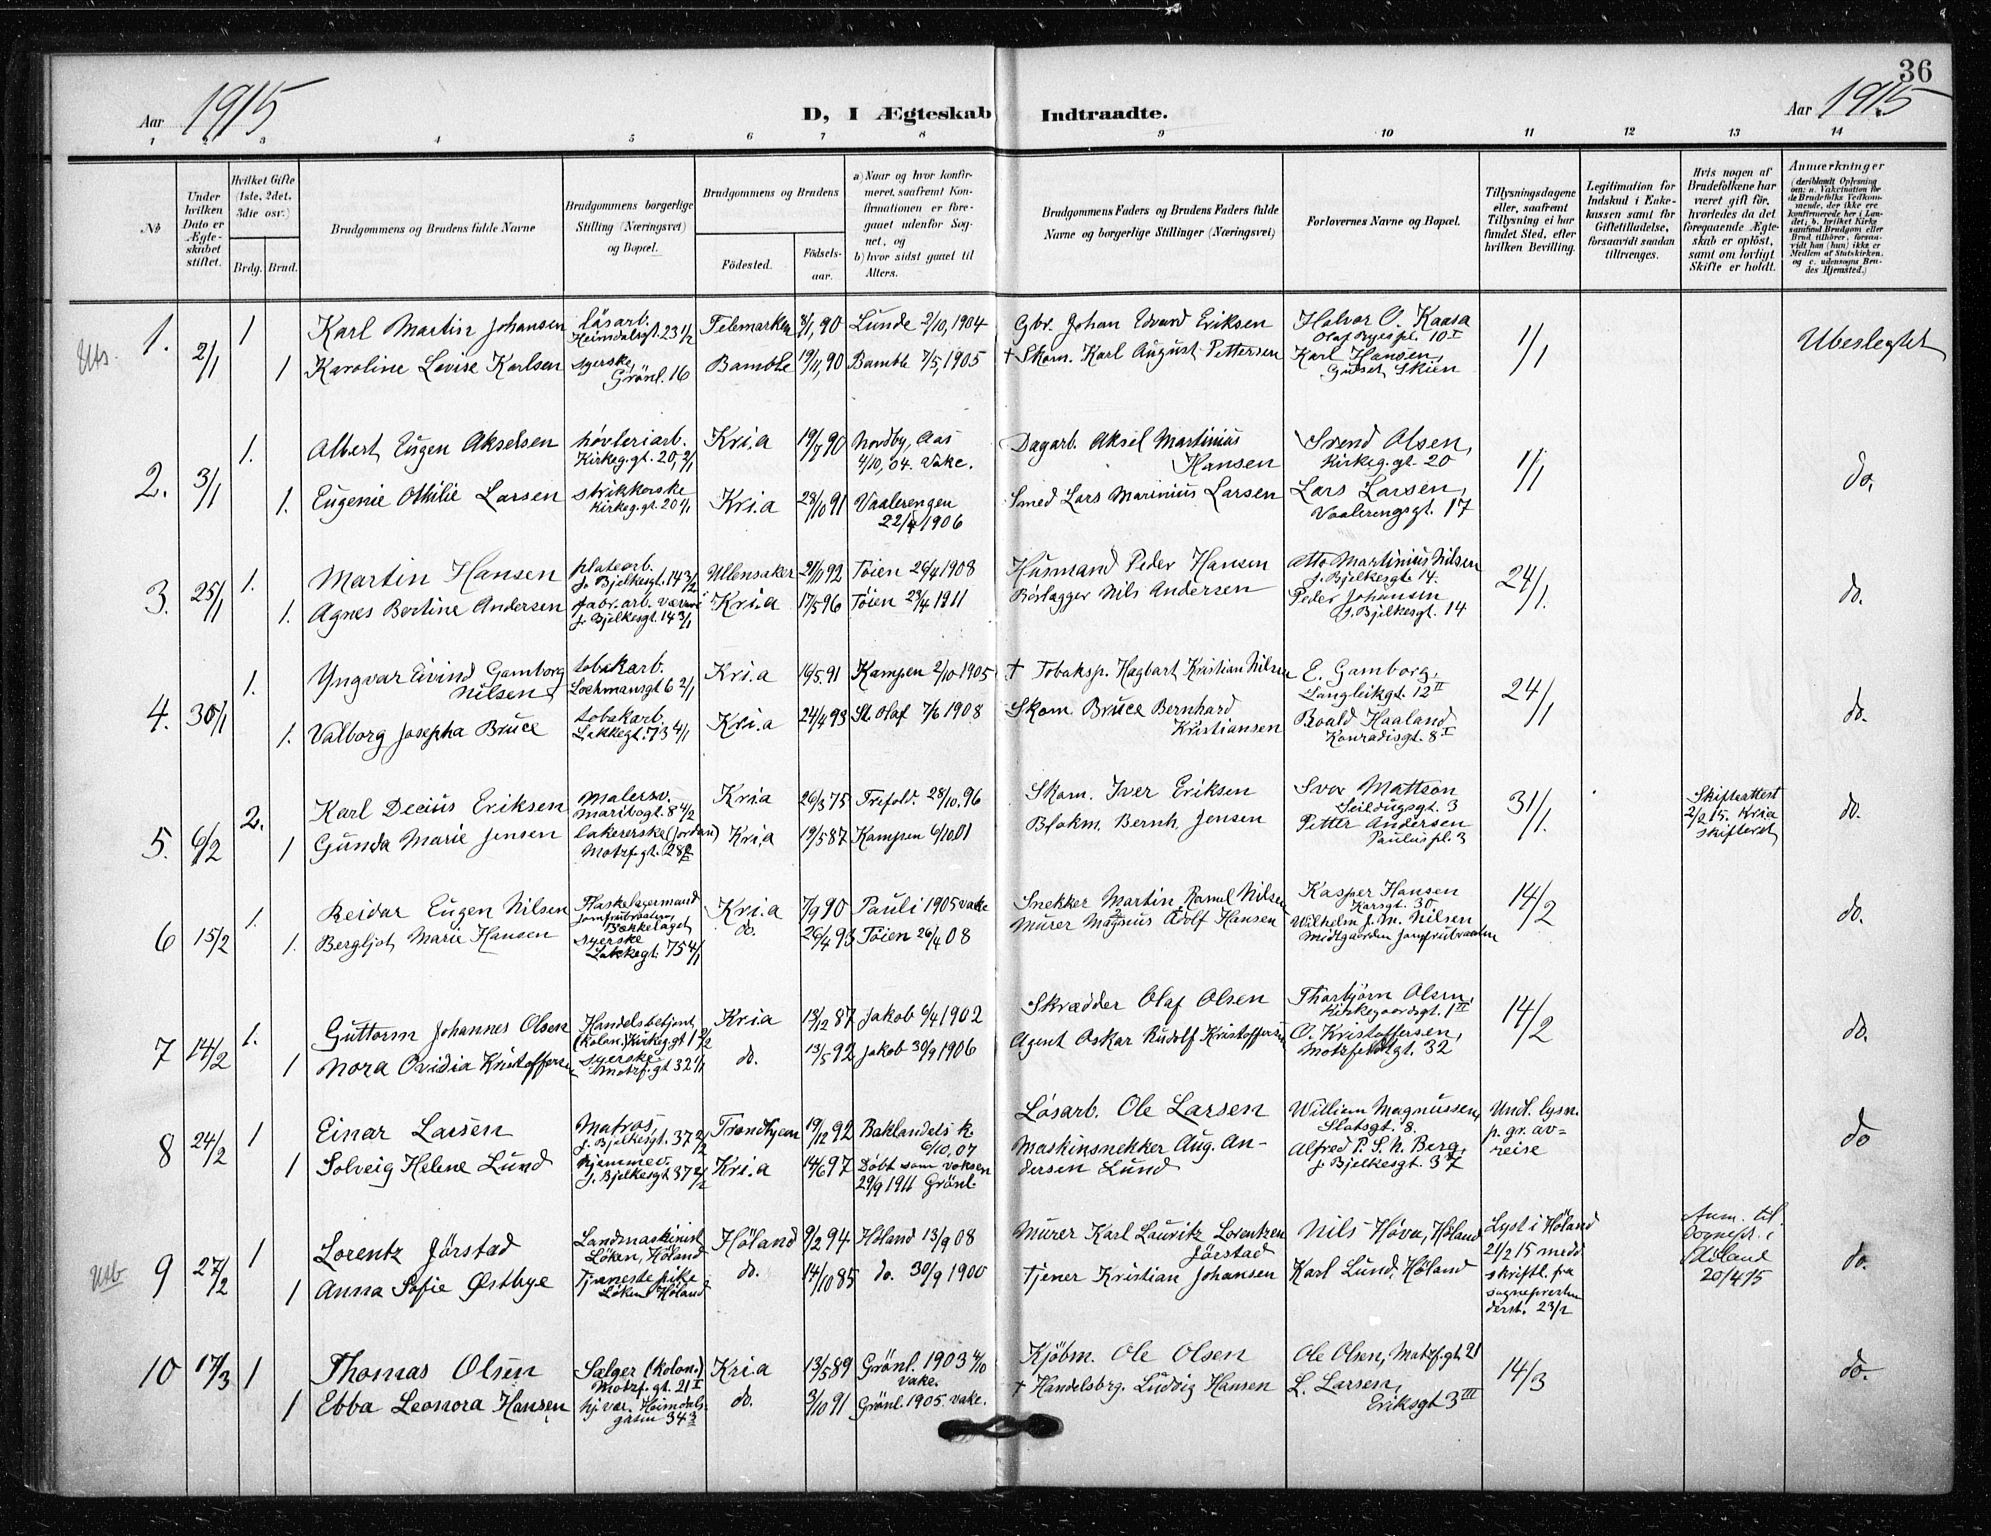 36
Aar 1915
D, I Ægteskab Indtraadte.
Aar 1915
1 2 3 4 5 6 7 8 9 10 11 12 13 14
No
Under hvilken Dato er Ægteskabet stiftet.
Hvilket Gifte (1ste, 2det, 3die osv.)
Brdg. Brud.
Brudgommens og Brudens fulde Navne
Brudgommens borgerlige Stilling (Næringsvei) og Bopæl.
Brudgommens og Brudens
Fødested.
Fødselsaar.
a) Naar og hvor konfirmeret, saafremt Konfirmationen er foregaaet udenfor Sognet, og
b) hvor sidst gaaet til Alters.
Brudgommens Faders og Brudens Faders fulde Navne og borgerlige Stillinger (Næringsvei)
Forlovernes Navne og Bopæl.
Tillysningsdagene eller, saafremt Tillysning ei har fundet Sted, efter hvilken Bevilling.
Legitimation for Indskud i Enkekassen samt for Giftetilladelse, forsaavidt saadan tiltrænges.
Hvis nogen af Brudefolkene har været gift før, hvorledes da det foregaaende Ægteskab er opløst, samt om lovligt Skifte er holdt.
Anmærkninger
(deriblandt Oplysning om: a. Vakcination for de Brudefolks Vedkommende, der ikke ere konfirmerede her i Landet; b. hvilket Kirkesamfund Brudgom eller Brud tilhører, forsaavidt han (hun) ikke er Medlem af Statskirken, og c. udensogns Brudes Hjemsted.)
Uts.
1. 2/1 1 Karl Martin Johansen løsarb. Heimdalsgt. 23 1/2 Telemarken 3/1, 90 Lunde 2/10, 1904 Gbr. Johan Edvard Eriksen Halvor O. Kaasa Olaf Ryes pl. 10 I 1/1 Ubeslegtet
1 Karoline Lovise Karlsen syerske, Grönl. 16 Bamble 19/11, 90 Bamble 7/5, 1905 † Skom. Karl August Pettersen Karl Hansen, Gulset, Skien
2. 3/1 1. Albert Eugen Akselsen høvleriarb. Kirkeg.gt. 20, 2/1 Kr.i.a 19/7 90 Nordby, Aas 4/10, 04. Vake. Dagarb. Aksel Martinius Hansen Svend Olsen, Kirkeg.gt. 20 1/1 do.
1. Eugenie Othilie Larsen strikkerske Kirkeg.gt. 20 2/1 Kr.i.a 28/10 91 Vaalerengen 22/4 1906 Smed Lars Marinius Larsen Lars Larsen, Vaalerengsgt. 17
3. 25/1 1. Martin Hansen platearb. J. Bjelkesgt. 14 3/2 Ullensaker 21/11 92 Töien 26/4 1908 Husmand Peder Hansen Otto Martinius Nilsen J. Bjelkesgt. 14. 24/1. do.
1. Agnes Bertine Andersen fabr.arb. J. Bjelkesgt. 14 3/1 Kr.i.a 17/5 96 Töien 23/4 1911 Rörlagger Nils Andersen Peder Johansen J. Bjelkesgt. 14
4. 30/1 1. Yngvar Eivind Gamborg Nilsen tobakarb. Lochmansgt 6 2/1 Kr.i.a 16/5. 91 Kampen 2/10 1905 † Tobaksp. Hagbart Kristian Nilsen E. Gamborg, Langleikgt. 12 II 24/1 do.
1. Valborg Josepha Bruce tobakarb. Lakkegt. 73 4/1 Kr.i.a 24/4 93 St Olaf 7/6 1908 Skom. Bruce Bernhard Kristiansen Roald Haaland Konradisgt. 8 I
5. 6/2 2. Karl Decius Eriksen Malersv. Maribogt. 8 4/2 Kria 26/3 75 Trefold. 28/10. 96 Skom. Iver Eriksen Svor Mattson Seildugsgt. 3 31/1. Skifteattest 2/2 15. Kria skifteret do.
1 Gunda Marie Jensen lakererske (Jordan) Motzf.gt. 28 Kr.i.a 19/5 87 Kampen 6/10 01 Blokm. Bernh. Jensen Petter Andersen Paulus pl. 3
6 15/2 1. Reidar Eugen Nilsen Flaskelagermand Jomfrubraaten, Bækkelaget Kr.i.a 7/9 90 Pauli 1905 vake Snekker Martin Ramul Nilsen Kasper Hansen Karsgt. 30 14/2 do.
1. Bergljot Marie Hansen syerske Lakkegt. 75 4/1 do. 26/4 93 Töien 26/4 08 Murer Magnus Adolf Hansen Wilhelm J. M. Nilsen Midtgaarden Jomfrubraaten
7 14/2 1. Guttorm Johannes Olsen Handelsbetjent (kolon.) Kirkeg.gt 1 2/2 Kria 13/12 87 Jakob 6/4 1902 Skrædder Olaf Olsen Thorbjörn Olsen, Kirkegaardsgt. 1 II 14/2 do.
1 Nora Ovidia Kristoffersen syerske Motzf.gt 32 1/1 do. 13/5 92 Jakob 30/9 1906 Agent Oskar Rudolf Kristoffersen O. Kristoffersen, Motzfeldtgt. 32
8 24/2 1 Einar Larsen Matros, J. Bjelkesgt. 37 2/2 Trondhjem 19/12 92 Baklandets k. 6/10, 07 Løsarb. Ole Larsen William Magnussen, Slotsgt. 8. Undl. lysn. p. gr. avreise do
1 Solveig Helene Lund hjemmev. J. Bjelkesgt. 37 2/2 Kr.i.a 14/6 97 Døbt som voksen 29/9 1911 Grönl. Maskinsnekker Aug. Andersen Lund Alfred P. S. N. Berg, J. Bjelkesgt. 37
Utb
9 27/2 1 Lorentz Jörstad Landmaskinist Löken, Höland Höland 9/2 94 Höland 13/9 08 Murer Karl Lauritz Lorentzen Jörstad Nils Høve, Höland Lyst i Höland 21/2 15 medd skriftl. fra sognepresten derst. 23/2 Anm. til Sognepr. i Höland 20/4 15 do.
1 Anna Sofie Østbye Tjeneste pike Löken, Höland do. 14/10 85 do. 30/9 1900 Tjener Kristian Johansen Karl Lund, Höland
10 17/3 1 Thomas Olsen Sælger (kolon.) Motzf.gt. 21 I Kr.i.a 13/5 89 Grönl. 1903 4/10 vake. Kjöbm. Ole Olsen Ole Olsen, Motzf.gt. 21 14/3 do.
1 Ebba Leonora Hansen hj. vær. Heimdalsgaten 34 3 do. 3/10 91 Grönl. 1905. vake. † Handelsbrg. Ludvig Hansen L. Larsen, Eriksgt 3 III